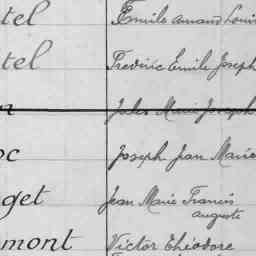 tel Emile Amand Louis
tel Frederic Emile Joseph
Jules Marie Joseph
oc Joseph Jean Marie
get Jean Marie Francis
auguste
mont Victor Théodore